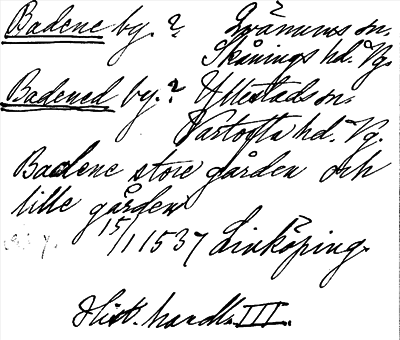 Badene by. ? Qvänums sn.
Skånings hd. Vg.
Badened by. ? Yllestads sn.
Vartofta hd. Vg.
Badene store gården och
lille gården
15/1 1537 Linköping.
Hist. handl. III.